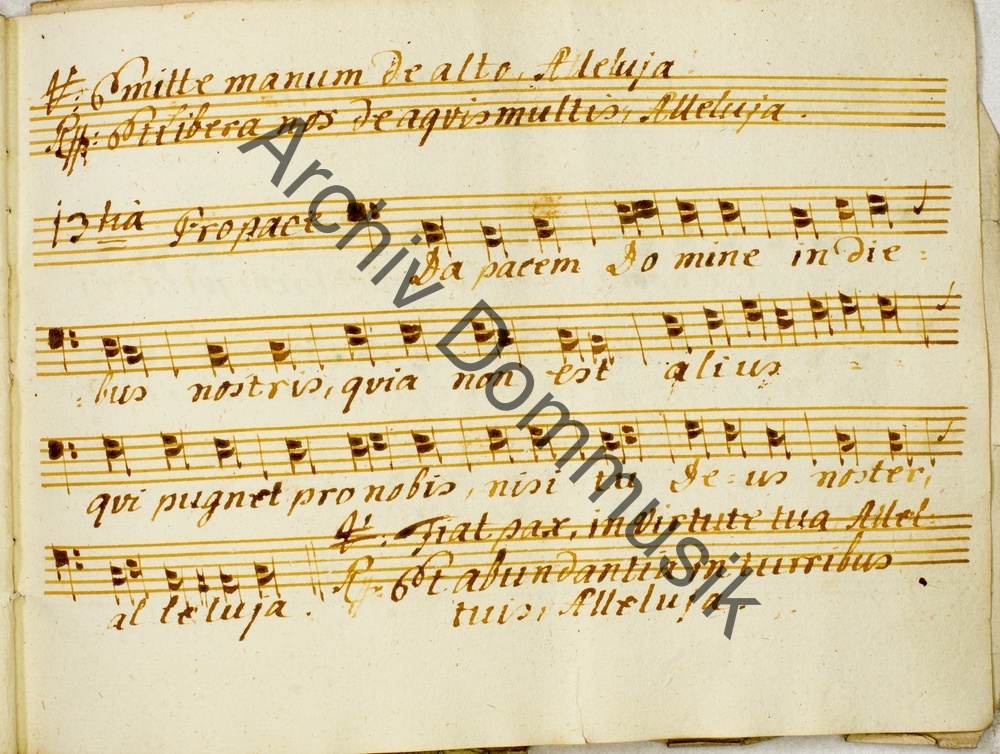 V. Emitte manum de alto, Alleluja
Resp: Et libera nos de aqvis multis, Alleluja.
13tia Pro pace
Da pacem Do mine in die=
=bus nostris, qvia non est ali us
qvi pugnet pro nobis, nisi tu De=us noster,
V. Fiat pax, in virtute tua Allel.
al le luja. R. Et abundantia in turribus
tuis, Alleluja.
Archiv Dommusik